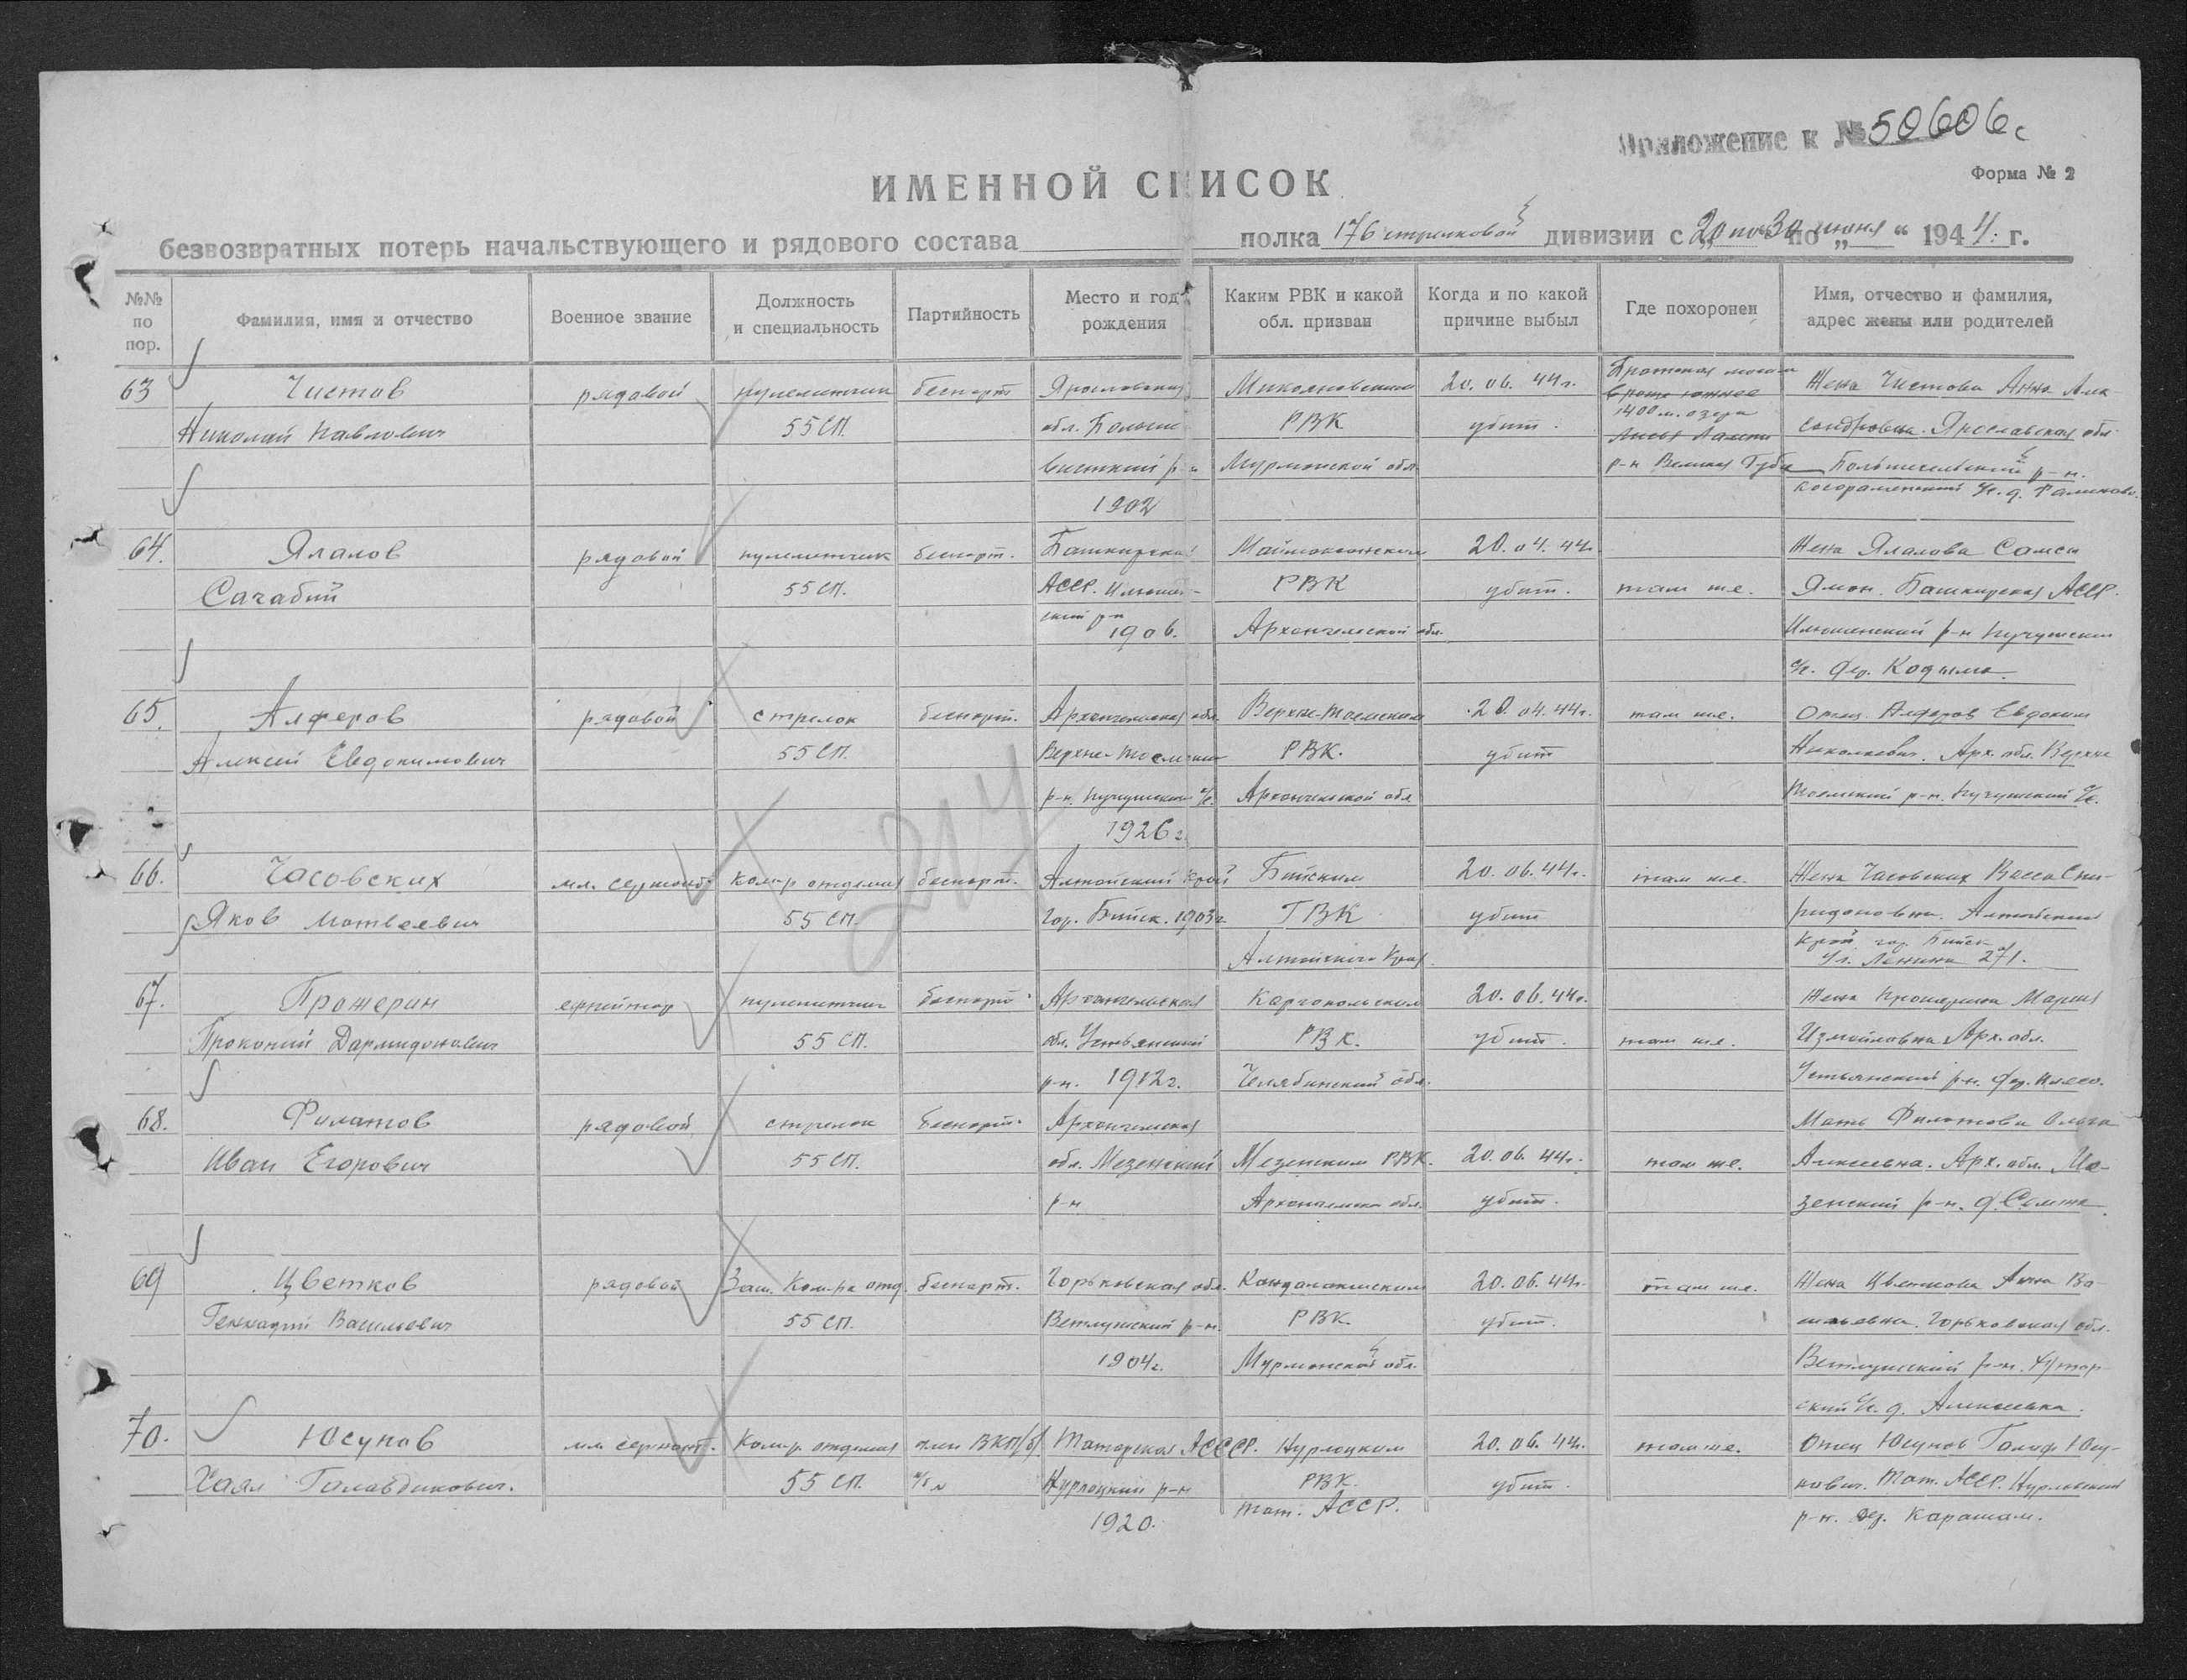 Приложение к № 50606с
Форма № 2
ИМЕННОЙ СПИСОК
безвозвратных потерь начальствующего и рядового состава полка 176 стрелковой дивизии с 20 по 30 июня 1944 г.
№№ по пор. Фамилия, имя и отчество Военное звание Должность и специальность Партийность Место и год рождения Каким РВК и какой обл. призван Когда и по какой причине выбыл Где похоронен Имя, отчество и фамилия, адрес жены или родителей
63 Чистов рядовой пулеметчик беспарт Ярославская 20. 06. 44г. Братская могила Жена Чистова Анна Алек-
Николай Павлович 55 СП. обл. РВК убит. 1400 м. озера сандровна. Ярославская обл.
р-н Мурманской обл. р-н Великая Губа р-н.
1902
64. Ялалов рядовой пулеметчик беспарт. Башкирская 20. 04. 44г. Жена Ялалова
55 СП. АССР. РВК убит. там же. Башкирская АССР.
ский р-н 1906. Архангельской обл. р-н
с/с. дер.
65. Алферов рядовой стрелок беспарт. Архангельская обл. Верхне-Тоемским 20. 04. 44г. там же. Отец. Алферов Евдоким
Алексей Евдокимович 55 СП. Верхне-Тоемский РВК. убит Николаевич. Арх. обл. Верхне
р-н. Пучужский с/с. Архангельской обл. Тоемский р-н. Пучужский с/с.
1926 г.
66. Часовских мл. сержант Ком-р отделения беспарт. Алтайский край Бийским 20. 06. 44г. там же. Жена Часовских Васса Спи-
Яков Матвеевич 55 СП. гор. Бийск. 1903г ГВК убит ридоновна. Алтайский
Алтайского Края. Край гор. Бийск
ул. Ленина 271.
67. Прожерин ефрейтор пулеметчик беспарт. Архангельская Каргопольским 20. 06. 44г. Жена Прожерина Мария
Прокопий 55 СП. обл. Устьянский РВК. убит. там же. Измайловна Арх. обл.
р-н. 1912г. Челябинской обл. Устьянский р-н. дер.
68. Филатов рядовой стрелок беспарт. Архангельская Мать Филатова Ольга
Иван Егорович 55 СП. обл. Мезенский Мезенским РВК. 20. 06. 44г. там же. Алексеевна. Арх. обл. Ме-
р-н Архангельской обл. убит. зенский р-н. д.
69 Цветков рядовой Зам. Ком-ра отд. беспарт. Горьковская обл. Кандалакшским 20. 06. 44г. там же. Жена Цветкова Анна Ва-
Геннадий Васильевич 55 СП. Ветлужский р-н. РВК убит. Горьковская обл.
1904г. Мурманской обл. Ветлужский р-н.
ский с/с. д. Алексеевка.
70. Юсупов мл. сержант. Ком-р отделения член ВКП/б/ Татарская АССР. Нурлацким 20. 06. 44г. там же. Отец Юсупов Юсу-
55 СП. Нурлацкий р-н РВК. убит. пович. Тат. АССР. Нурлатский
1920. Тат. АССР. р-н. дер.
217